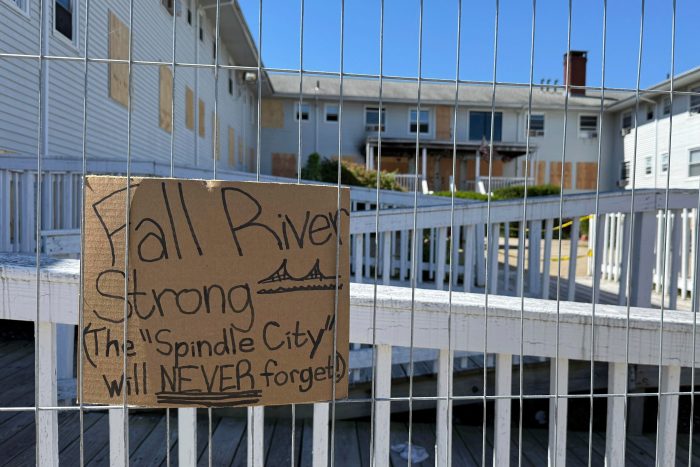 Fall River
Strong
(The "Spindle City"
will NEVER forget!)